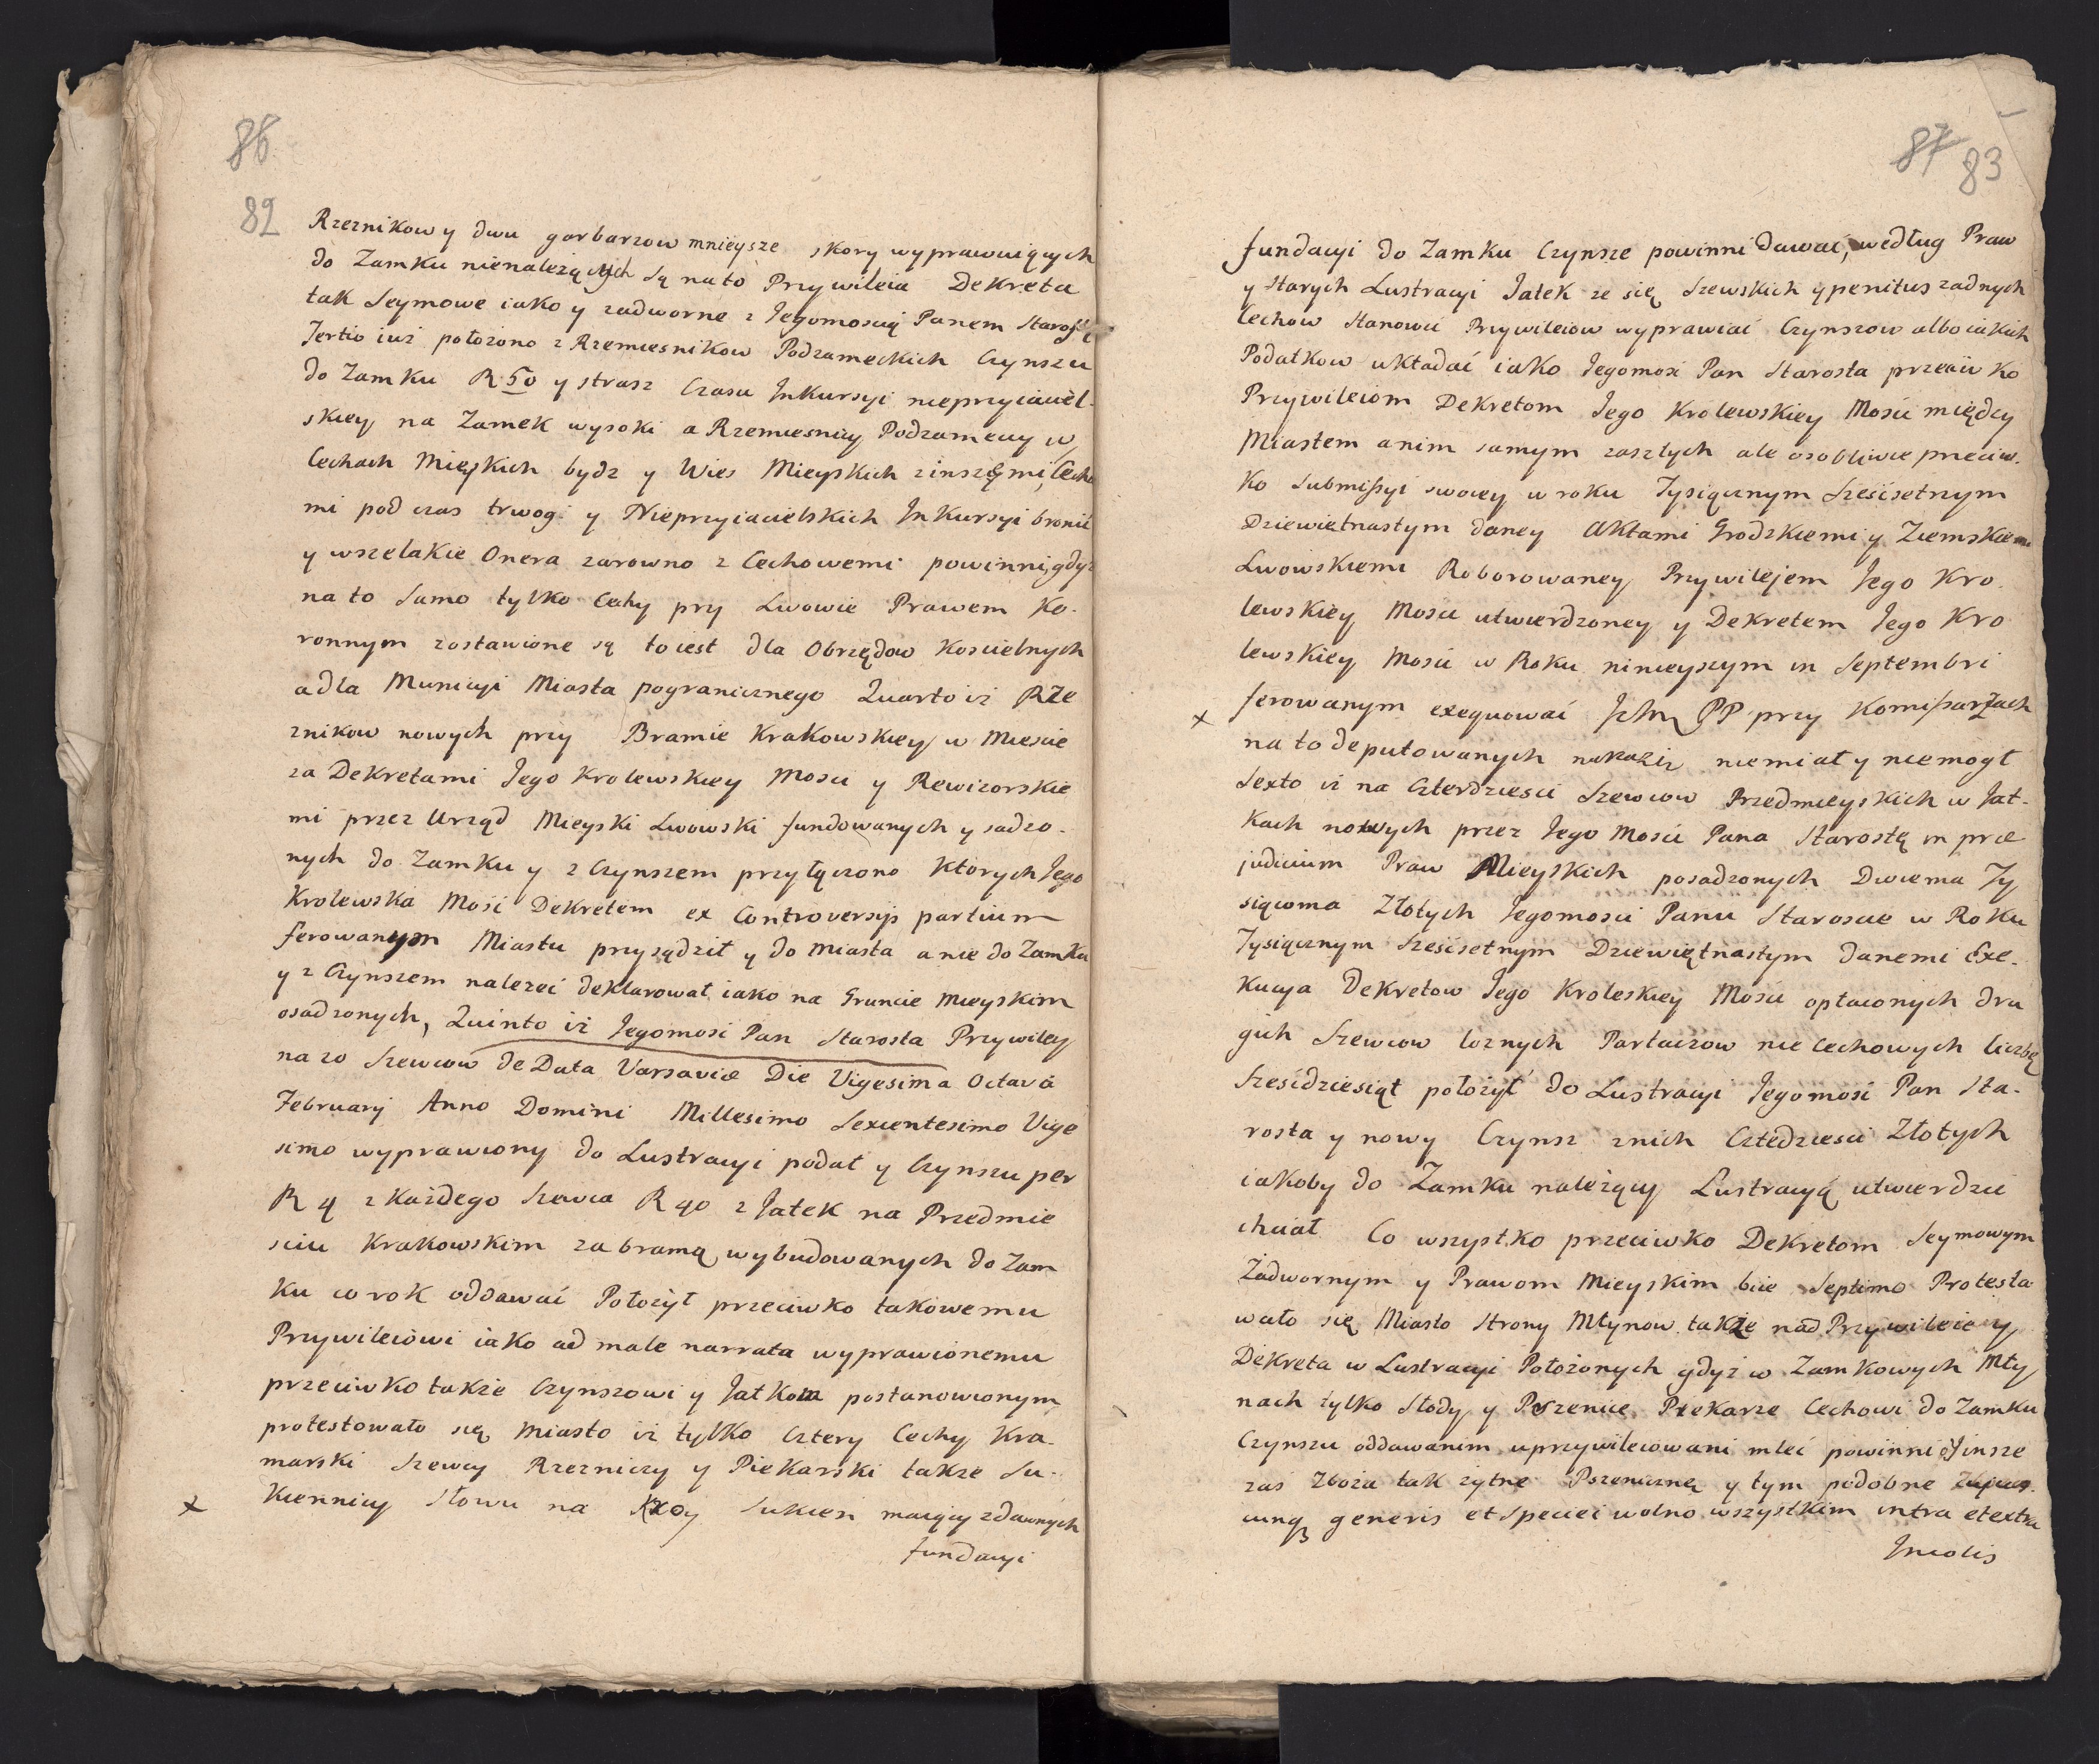 86
82
Rzeznikow y dwu garbarzow mnieysze skory wyprawuiących
do Zamku nienależących są na to Przywileia Dekreta
tak Seymowe iako y zadworne z Jegomoscią Panem Starostą
Tertio iuż położono z Rzemiesnikow Podzameckich Czynszu
do Zamku R 50 y strasz Czasu Inkursyi nieprzyiaciel-
skiey na Zamek wysoki a Rzemiesnicy Podzamccy w
Cechach Mieyskich bydz y Wies Mieyskich z inszemi Cecha
mi pod czas trwogi y Nieprzyiacielskich Inkursyi bronić
y wszelakie Onera zarowno z Cechowemi powinni, gdyż
na to samo tylko Cechy przy Lwowie Prawem Ko-
ronnym zostawione są to iest dla Obrzędow Koscielnych
a dla Municyi Miasta pogranicznego Quarto iż Rze
znikow nowych przy Bramie Krakowskiey w Miescie
za Dekretami Jego Krolewskiey Mosci y Rewizorskie
mi przez Urząd Mieyski Lwowski fundowanych y sadzo-
nych do Zamku y z Czynszem przyłączono ktorych Jego
Krolewska Mość Dekretem ex Controversijs partium
ferowanym Miastu przysądził y do miasta a nie do Zamku
y z Czynszem należeć deklarował iako na Gruncie Mieyskim
osadzonych, Quinto iż Jegomość Pan Starosta Przywiley
na 20 Szewcow de Data Varsaviæ Die Vigesima Octava
Februarij Anno Domini Millesimo Sexcentesimo Vige
simo wyprawiony do Lustracyi podał y Czynszu per
R 4 z każdego Szewca R 40 z Jatek na Przedmie
sciu Krakowskim za bramą wybudowanych do Zam
ku co rok oddawać Położył przeciwko takowemu
Przywileiowi iako ad male narrata wyprawionemu
przeciwko także Czynszowi y Jatkom postanowionym
protestowało się miasto iż tylko Cztery Cechy Kra-
marski Szewcy Rzezniczy y Piekarski także Su-
kiennicy Słowu na Kroy Sukien maiący z dawnych
x
fundacyi
87 83
fundacyi do Zamku Czynsze powinni dawać, według Praw
y Starych Lustracyi Jatek ze się Szewskich y penitus zadnych
Cechow Stanowić Przywileiow wyprawiać Czynszow albo iakich
Podatkow układać iako Jegomość Pan Starosta przeciwko
Przywileiom Dekretom Jego Krolewskiey Mosci między
Miastem a nim samym zaszłych ale osobliwie przeciw-
ko Submissyi swoiey w roku Tysiącznym Sześćsetnym
Dziewietnastym daney Aktami Grodzkiemi y Ziemskiemi
Lwowskiemi Roborowaney Przywilejem Jego Kro
lewskiey Mosci utwierdzoney y Dekretem Jego Kro
lewskiey Mosci w Roku ninieyszym in Septembri
ferowanym exequować PP przy Komissarzach
x
na to deputowanych niemiał y niemogł
Sexto iż na Czterdziesci Szewcow Przedmieyskich w Jat-
kach nowych przez Jego Mosci Pana Starostę in præ
judicium Praw Mieyskich posadzonych Dwiema Ty
siącoma Złotych Jegomosci Panu Staroscie w Roku
Tysiącznym Sześćsetnym Dziewiętnastym danemi Exe-
kucya Dekretow Jego Kroleskiey Mosci opłaconych dru
gich Szewcow loznych Partaczow nie Cechowych liczbę
Sześćdziesiąt położył do Lustracyi Jegomość Pan Sta-
rosta y nowy Czynsz z nich Cztedziesci Złotych
iakoby do Zamku należący Lustracyą utwierdzić
chciał Co wszystko przeciwko Dekretom Seymowym
Zadwornym y Prawom Mieyskim bie Septimo Protesta
wało się Miasto Strony Młynow także nad Przywileie y
Dekreta w Lustracyi Położonych gdyż w Zamkowych Mły
nach tylko Słody y Pszenice Piekarze Cechowi do Zamku
Czynszu oddawanim uprzywileiowani mleć powinni insze
zaś Zboża tak żytne Pszeniczne y tym podobne
cunq generis et Speciei wolno wszystkim intra et extra
Incolis